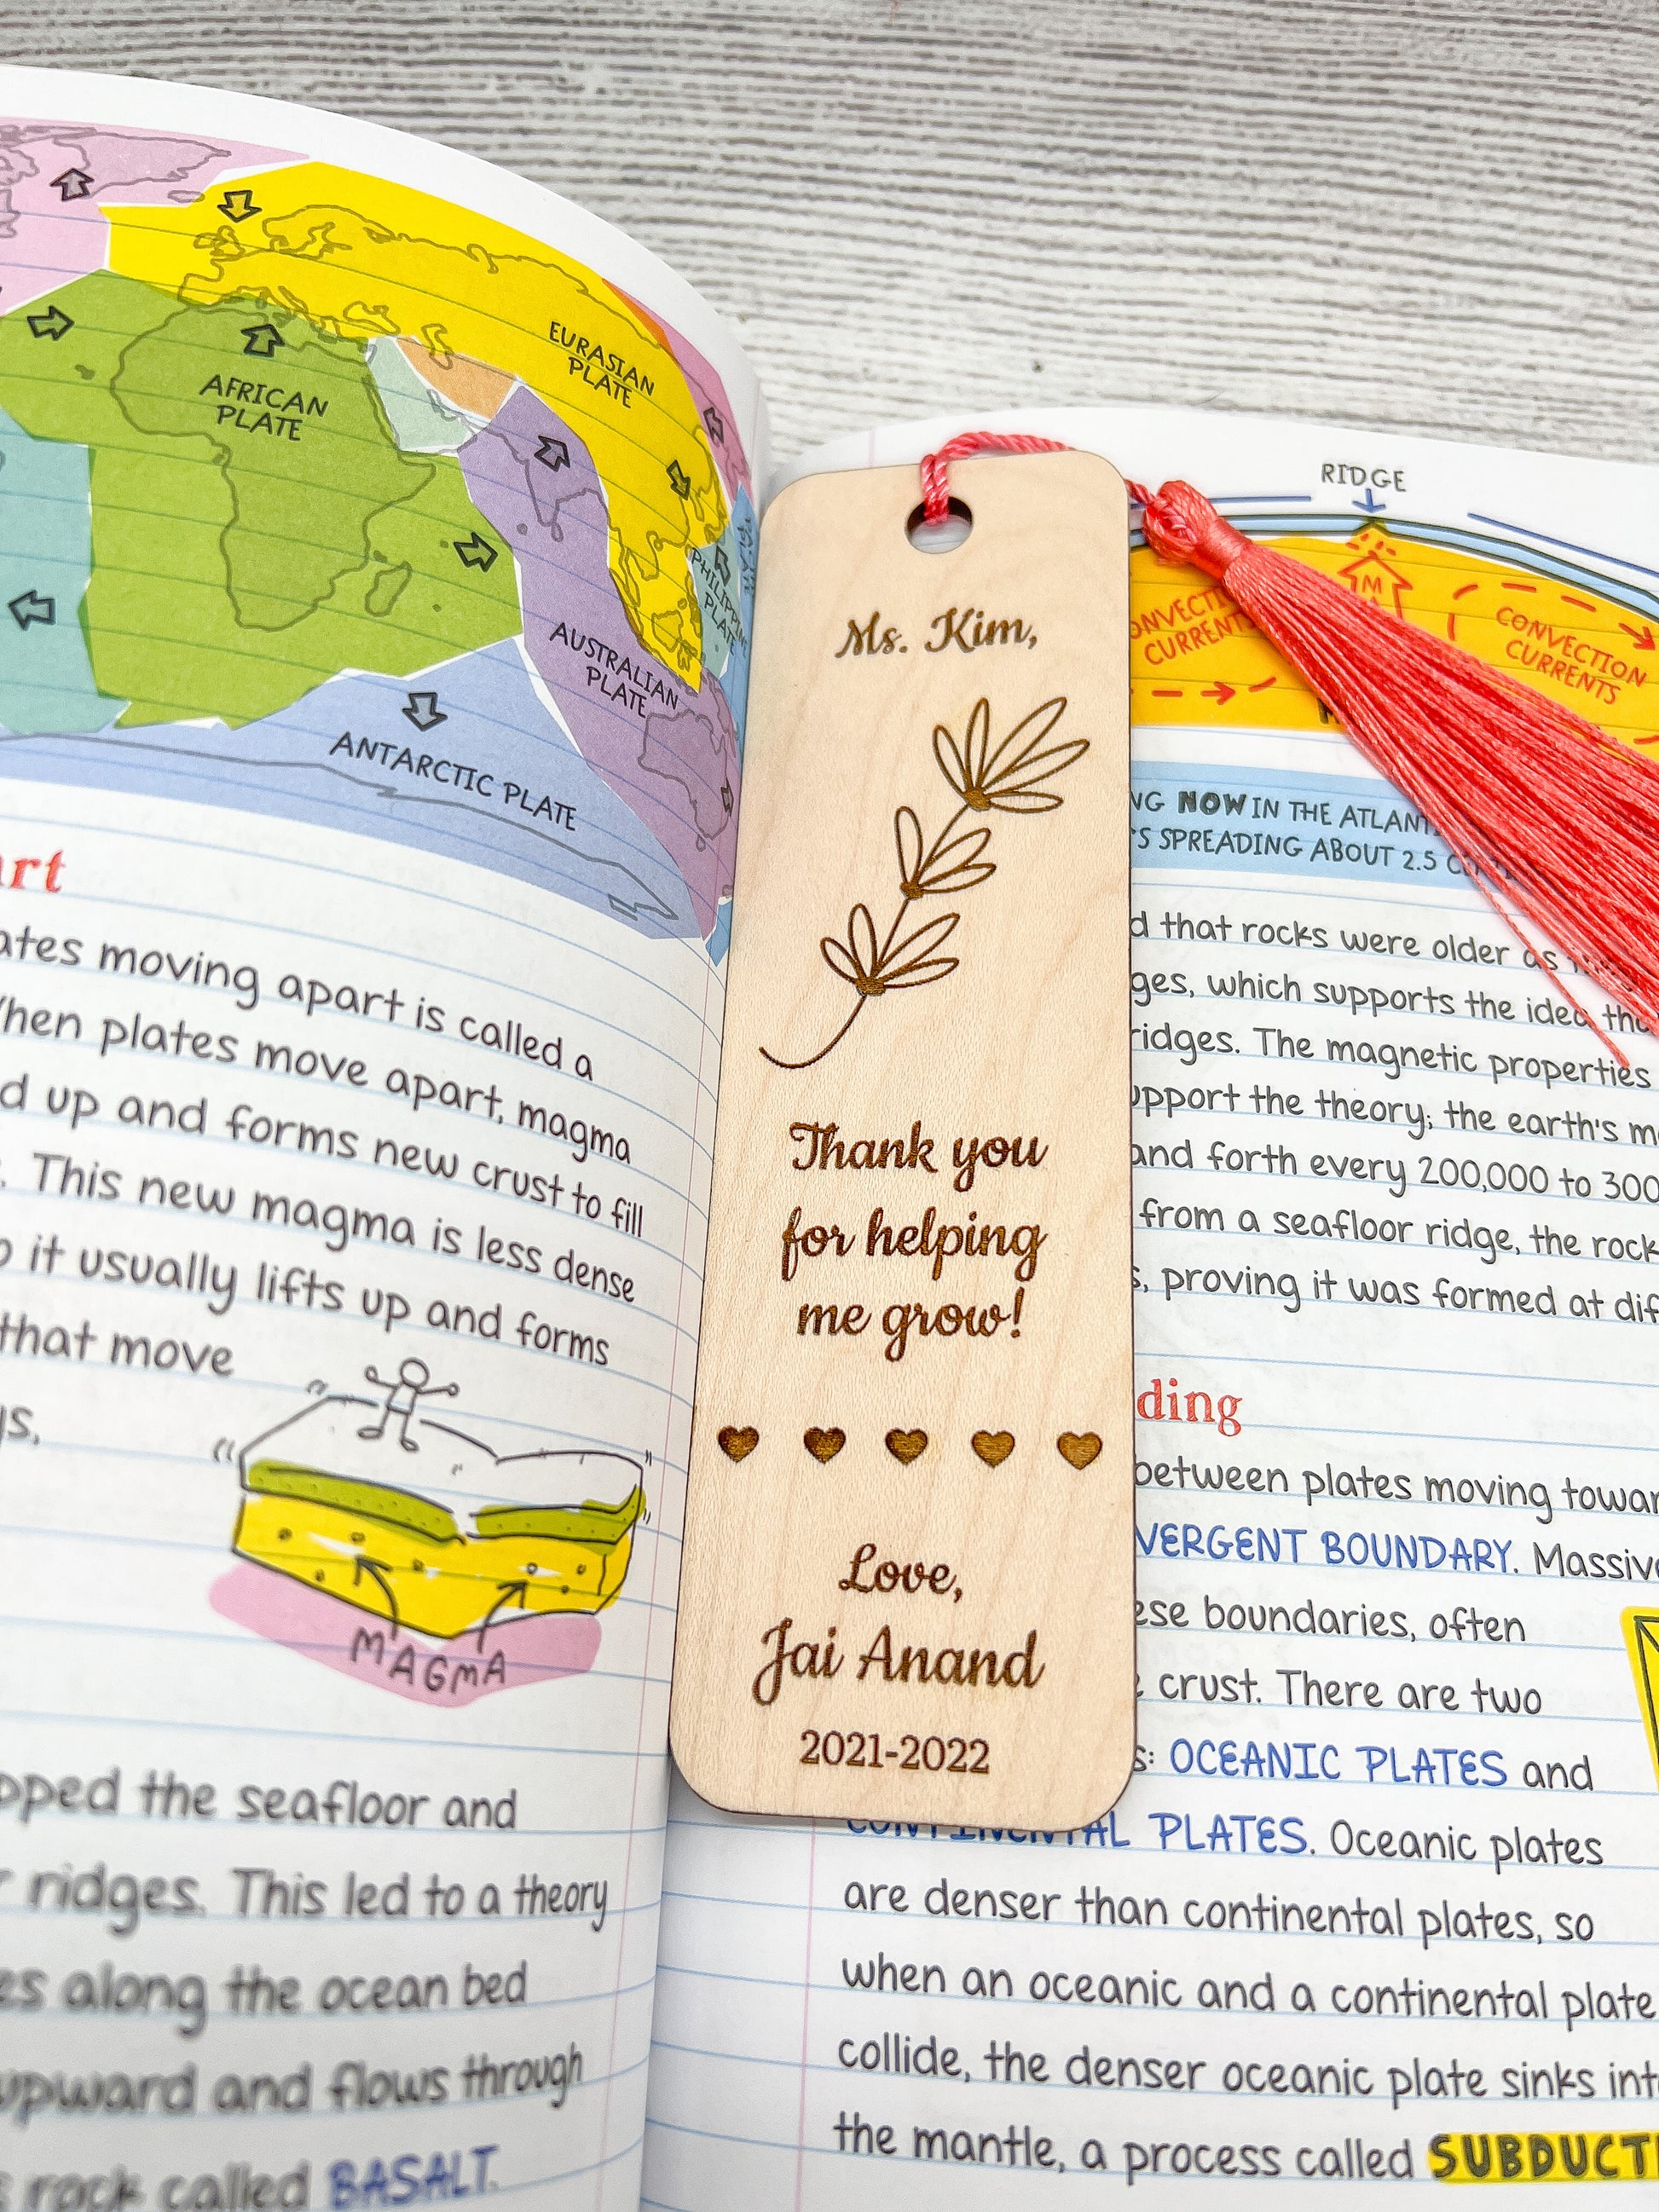 EURASIAN
PLATE
AFRICAN
PLATE
PHILIPPINE
PLATE
AUSTRALIAN
PLATE
ANTARCTIC PLATE
moving apart is called a
plates move apart, magma
up and forms new crust to fill
This new magma is less dense
it usually lifts up and forms
that move
MAGMA
the seafloor and
ridges. This led to a theory
along the ocean bed
upward and flows through
rock called BASALT.
Ms. Kim,
Thank you
for helping
me grow!
Love,
Jai Anand
2021-2022
RIDGE
M
CURRENTS
CONVECTION
CURRENTS
NOW IN THE ATLANTIC
SPREADING ABOUT 2.5
that rocks were older as
which supports the idea
ridges. The magnetic properties
the theory; the earth's
and forth every 200,000 to
from a seafloor ridge, the
proving it was formed at
between plates moving
BOUNDARY. Massive
boundaries, often
crust. There are two
OCEANIC PLATES and
CONTINENTAL PLATES. Oceanic plates
are denser than continental plates, so
when an oceanic and a continental plate
collide, the denser oceanic plate sinks
the mantle, a process called